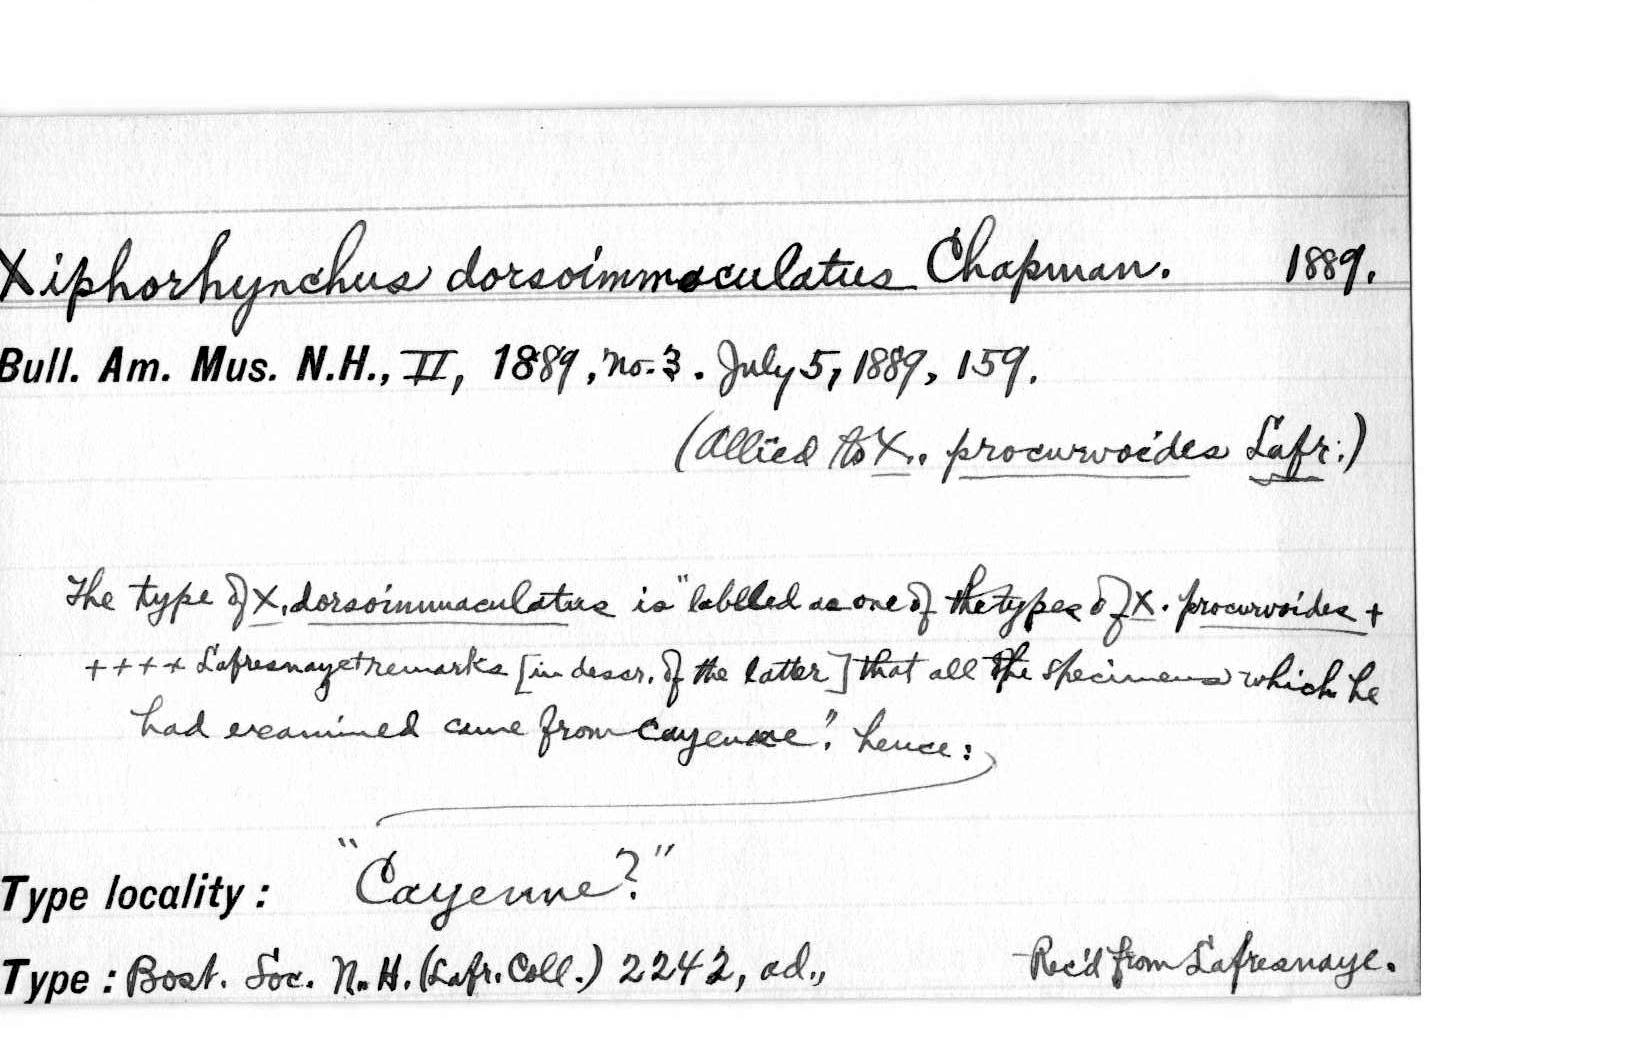 Xiphorhynchus dorsoimmaculatus Chapman. 1889.
Bull. Am. Mus. N.H., II, 1889, no. 3. July 5, 1889, 159.
(Allied to X. procurvoides Lafr.)
The type of X. dorsoimmaculatus is "labelled as one of the types of X. procurvoides +
++++ Lafresnaye + remarks [in descr. of the latter] that all the specimens which he
had examined came from Cayenne". hence:
Type locality: "Cayenne?"
Type: Bost. Soc. N.H. (Lafr. Coll.) 2242, ad., Rec'd from Lafresnaye.